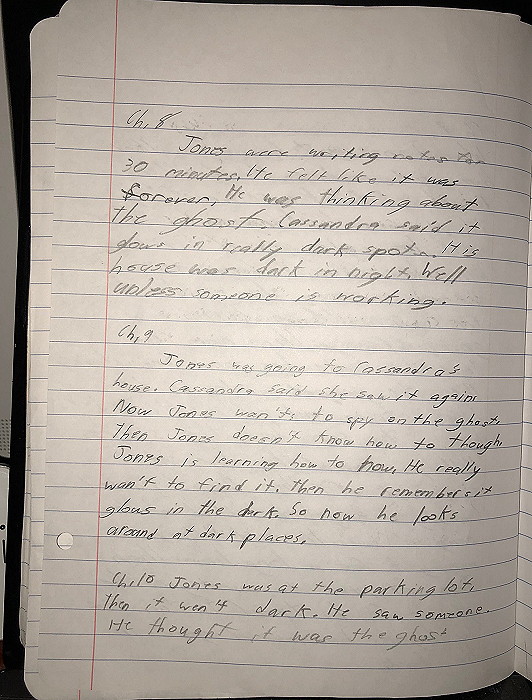 Ch, 8
Jones were writing notes for
30 minutes, He felt like it was
forever, He was thinking about
the ghost. Cassandra said it
glows in really dark spots. His
house was dark in night, Well
unless someone is working.
Ch, 9
Jones was going to Cassandra's
house. Cassandra said she saw it again.
Now Jones wan't, to spy on the ghost,
Then Jones doesn't know how to though.
Jones is learning how to now. He really
wan't to find it. Then he remembers it
glows in the dark. So now he looks
around at dark places.
Ch, 10 Jones was at the parking lot.
Then it wen't dark. He saw someone.
He thought it was the ghost